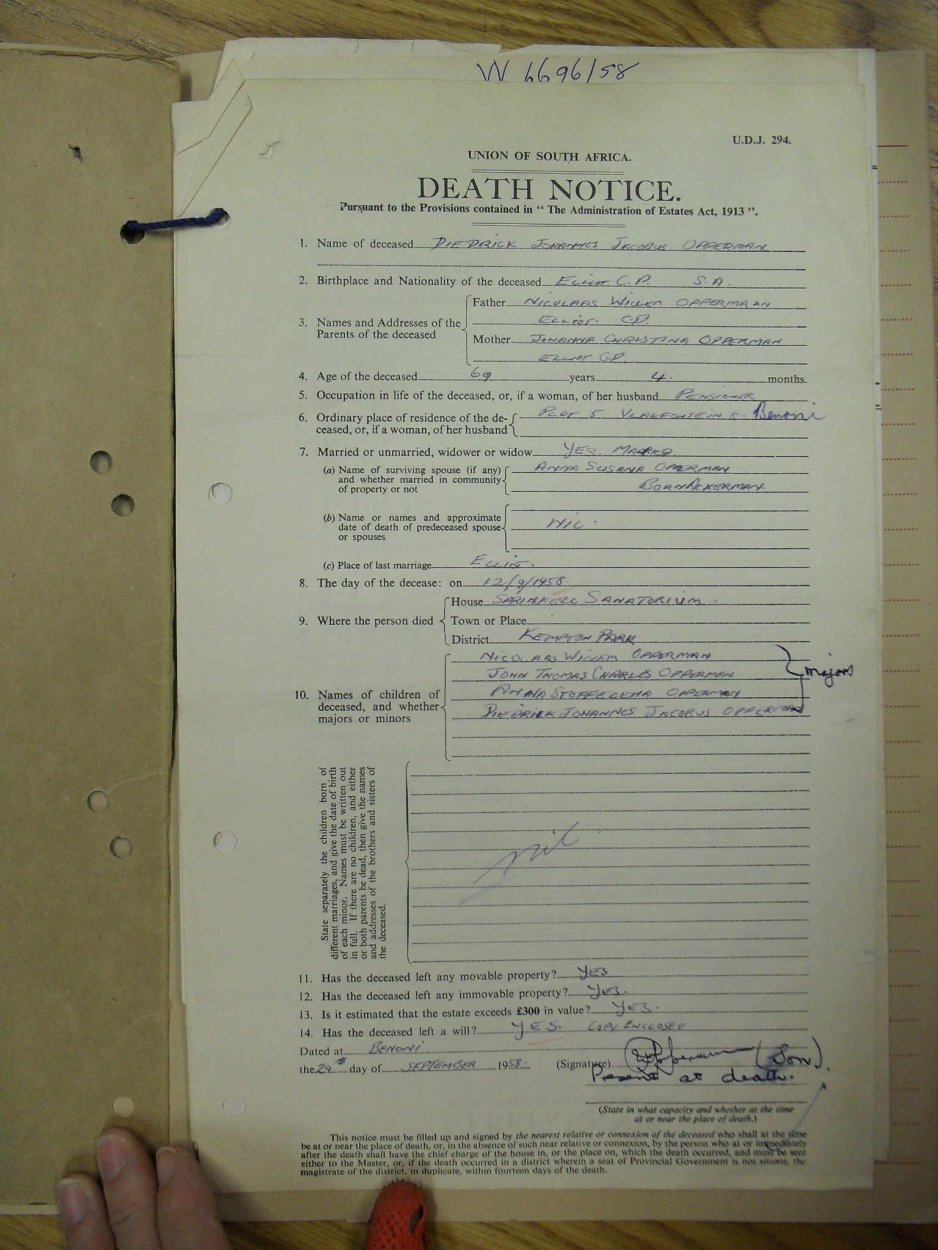 W 6696/58
U.D.J. 294.
UNION OF SOUTH AFRICA.
DEATH NOTICE.
Pursuant to the Provisions contained in “ The Administration of Estates Act, 1913 ”.
1. Name of deceased DIEDRICK JOHANNES JACOBUS OPPERMAN
2. Birthplace and Nationality of the deceased ELLIOT C.P. S.A.
3. Names and Addresses of the Parents of the deceased
Father NICOLAAS WILLEM OPPERMAN
ELLIOT. CP.
Mother JOHANNA CHRISTINA OPPERMAN
ELLIOT CP
4. Age of the deceased 69 years 4 months.
5. Occupation in life of the deceased, or, if a woman, of her husband PENSIONER
6. Ordinary place of residence of the de-
ceased, or, if a woman, of her husband
PLOT 5 VLAKFONTEIN Benoni
7. Married or unmarried, widower or widow YES. MARRIED
(a) Name of surviving spouse (if any)
and whether married in community
of property or not
ANNA SUSANA OPPERMAN
BORN ACKERMAN
(b) Name or names and approximate
date of death of predeceased spouse
or spouses
NIL.
(c) Place of last marriage ELLIOT.
8. The day of the decease: on 12/9/1958.
9. Where the person died
House SANATORIUM.
Town or Place
District KEMPTON PARK
10. Names of children of
deceased, and whether
majors or minors
NICOLAAS WILLEM OPPERMAN
JOHN THOMAS CHARLES OPPERMAN
ANNA STOFFELENA OPPERMAN
DIEDRICK JOHANNES JACOBUS OPPERMAN
majors
State separately the children born of
different marriages, and give the date of birth
of each minor. Names must be written out
in full. If there are no children, and either
or both parents be dead, then give the names
and addresses of the brothers and sisters of
the deceased.
nil
11. Has the deceased left any movable property? YES
12. Has the deceased left any immovable property? YES.
13. Is it estimated that the estate exceeds £300 in value? YES.
14. Has the deceased left a will? YES. COPY ENCLOSED
Dated at BENONI
the 29th day of SEPTEMBER 1958 (Signature) Opperman (Son).
Present at death.
(State in what capacity and whether at the time
at or near the place of death.)
This notice must be filled up and signed by the nearest relative or connexion of the deceased who shall at the time
be at or near the place of death, or, in the absence of such near relative or connexion, by the person who at or immediately
after the death shall have the chief charge of the house in, or the place on, which the death occurred, and must be sent
either to the Master, or, if the death occurred in a district wherein a seat of Provincial Government is not situate, the
magistrate of the district, in duplicate, within fourteen days of the death.